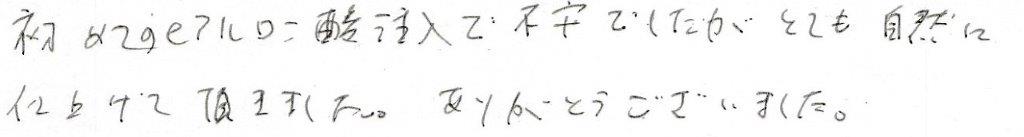 初めてのヒアルロン酸注入で不安でしたが とても自然に
仕上げて頂きました。ありがとうございました。